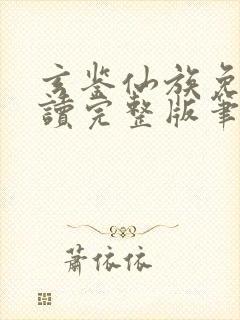 玄鉴仙族免
讀完整版筆
蕭依依